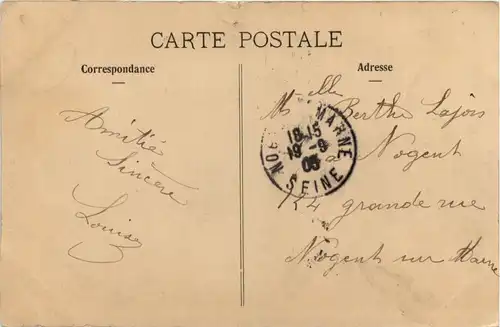 CARTE POSTALE
Correspondance
Adresse
Amitié
Sincère
Louise
Melle Berthe Lajois
à Nogent
124 grande rue
Nogent sur Marne
MARNE
18 15
19 -9
05
NOG
SEINE